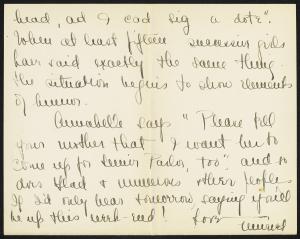 head, ad I cad sig a dote".
When at least fifteen successive girls
have said exactly the same thing
the situation begins to show elements
of humor.
Annabelle says "Please tell
your mother that I want her to
come up for Senior Parlor, too" and so
does Glad & numerous other people
If I'd only hear tomorrow, saying you'll
be up this week-end! Love
Muriel